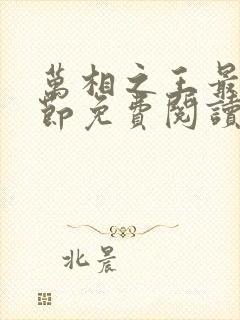 萬相之王最
節免費閱讀
北晨